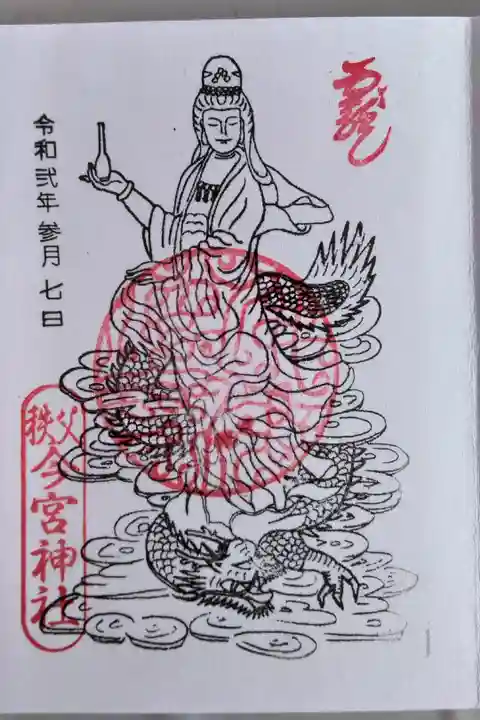 令和弐年参月七日
秩父
今宮神社